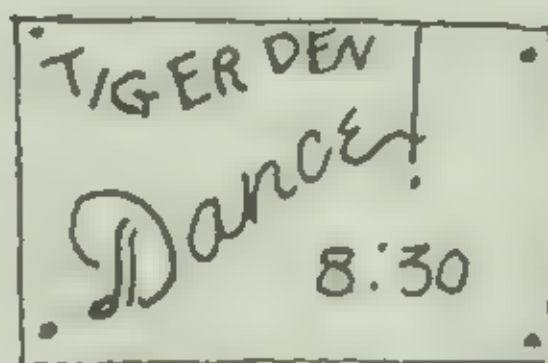 TIGER DEN
Dance!
8:30